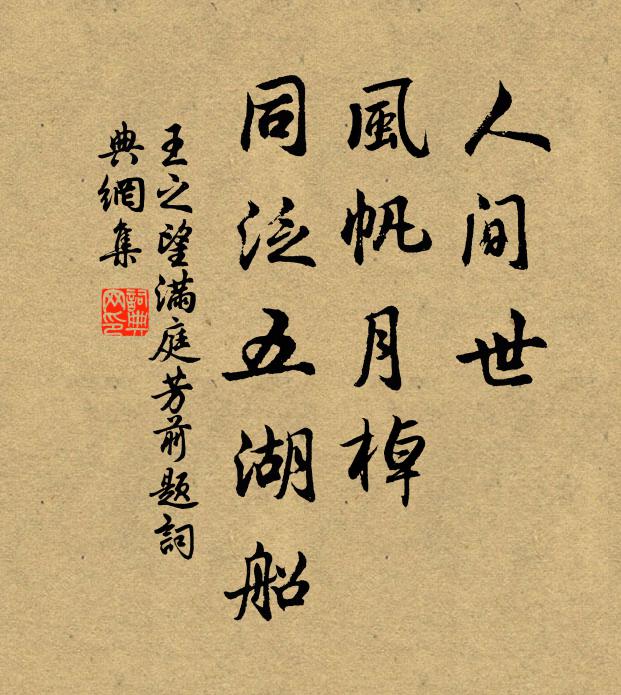 人间世
風帆月棹
同泛五湖船
王之望满庭芳前题詞
典網集
詞典
网印